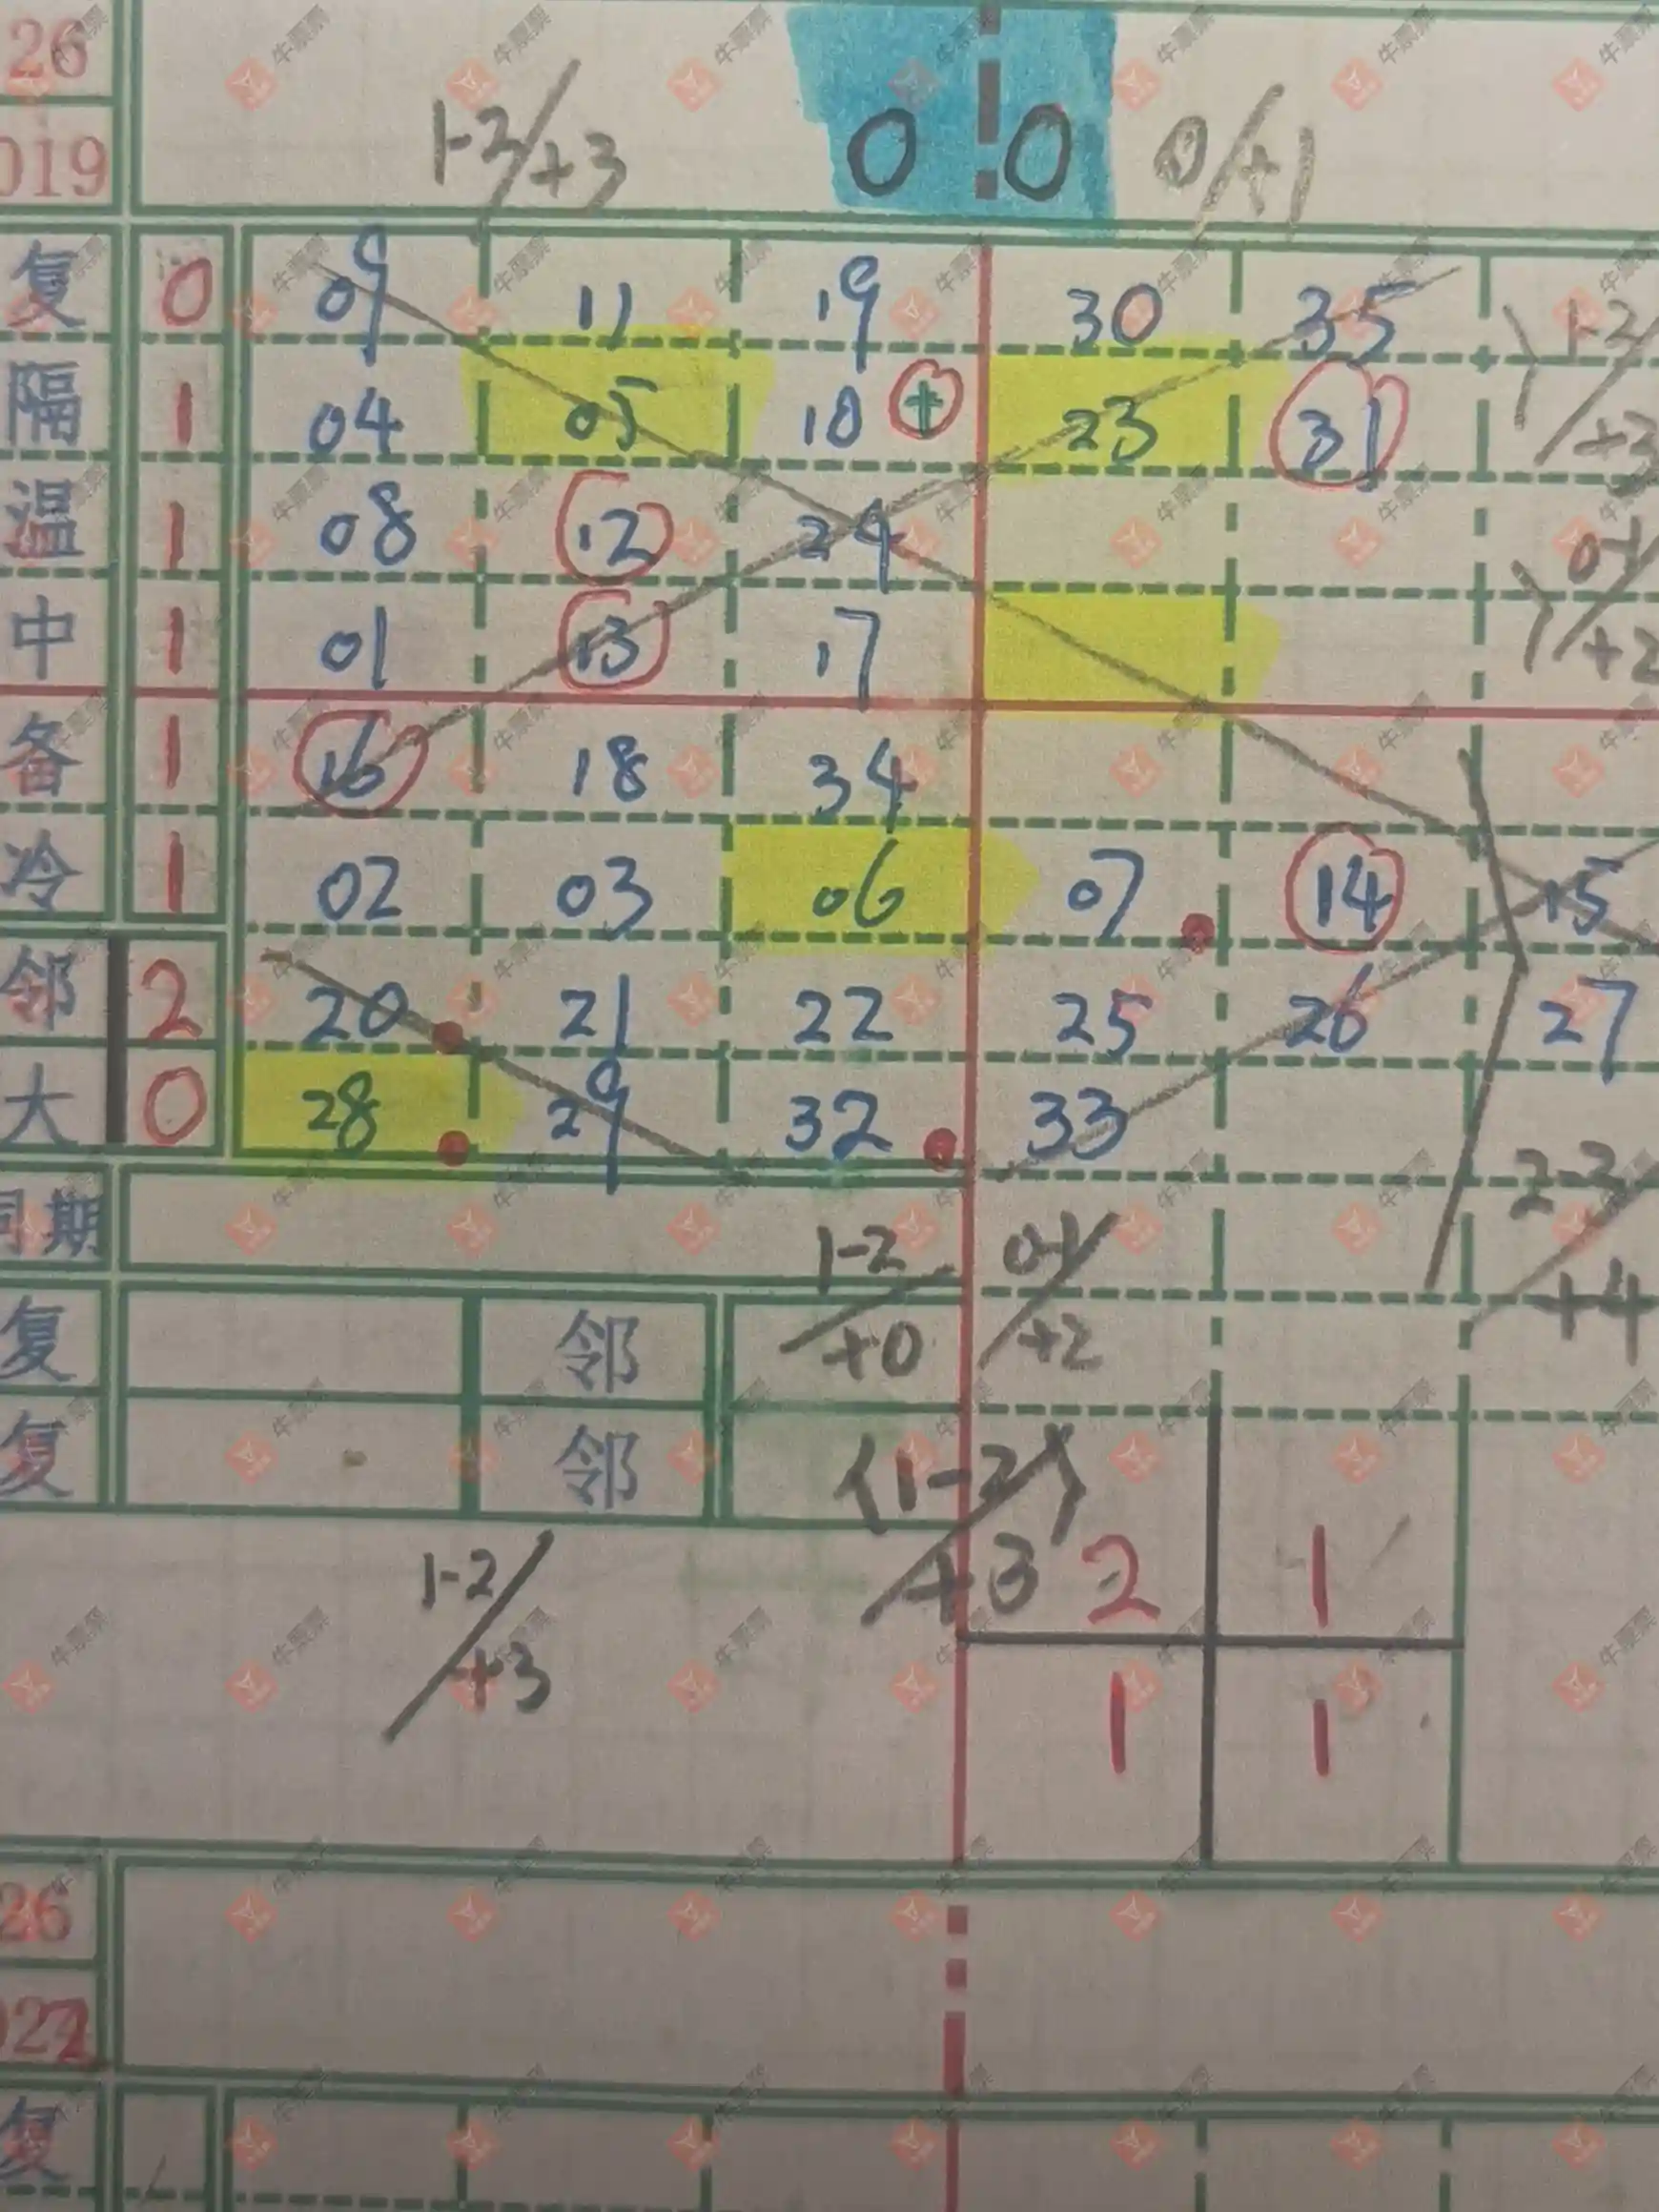 26
019
1-3/+3 0 0 0/+1
复 0 09 11 19 30 35 1-2/+3
隔 1 04 05 10 + 23 31
温 1 08 12 24 0-1/+2
中 1 01 13 17
备 1 16 18 34
冷 1 02 03 06 07 14 15
邻 2 20 21 22 25 26 27
大 0 28 29 32 33
2-3/+4
同期
1-2/+0 0-1/+2
复 邻
复 邻
{1-2}/+3
1-2/+3
2 1
1 1
26
022
复
牛票票